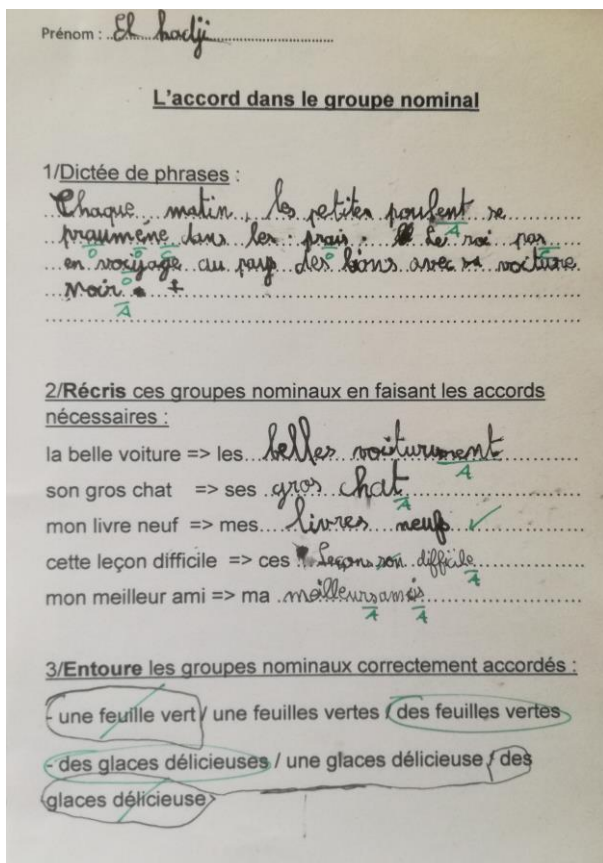 Prénom : El hadji
L'accord dans le groupe nominal
1/Dictée de phrases :
Chaque matin, les petites poulent se
praumène dans les prais. Le roi pas
en voyage au pays des bons avec sa voiture
noir.
2/Récris ces groupes nominaux en faisant les accords
nécessaires :
la belle voiture => les belles voiturument
son gros chat => ses gros chat
mon livre neuf => mes livres neufs
cette leçon difficile => ces Leçons son difficile
mon meilleur ami => ma meilleurs amis
3/Entoure les groupes nominaux correctement accordés :
- une feuille vert / une feuilles vertes / des feuilles vertes
- des glaces délicieuses / une glaces délicieuse / des
glaces délicieuse